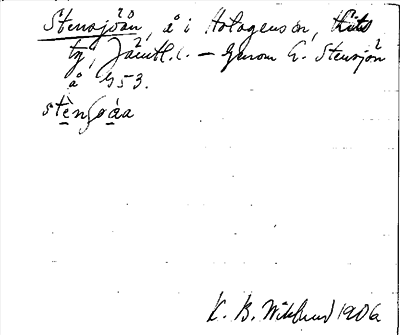 Stensjöån, å i Hotagens sn,
Jämtl. l. — Genom G. Stensjön
å G53.
stènʃøáa
K. B. Wiklund 1906